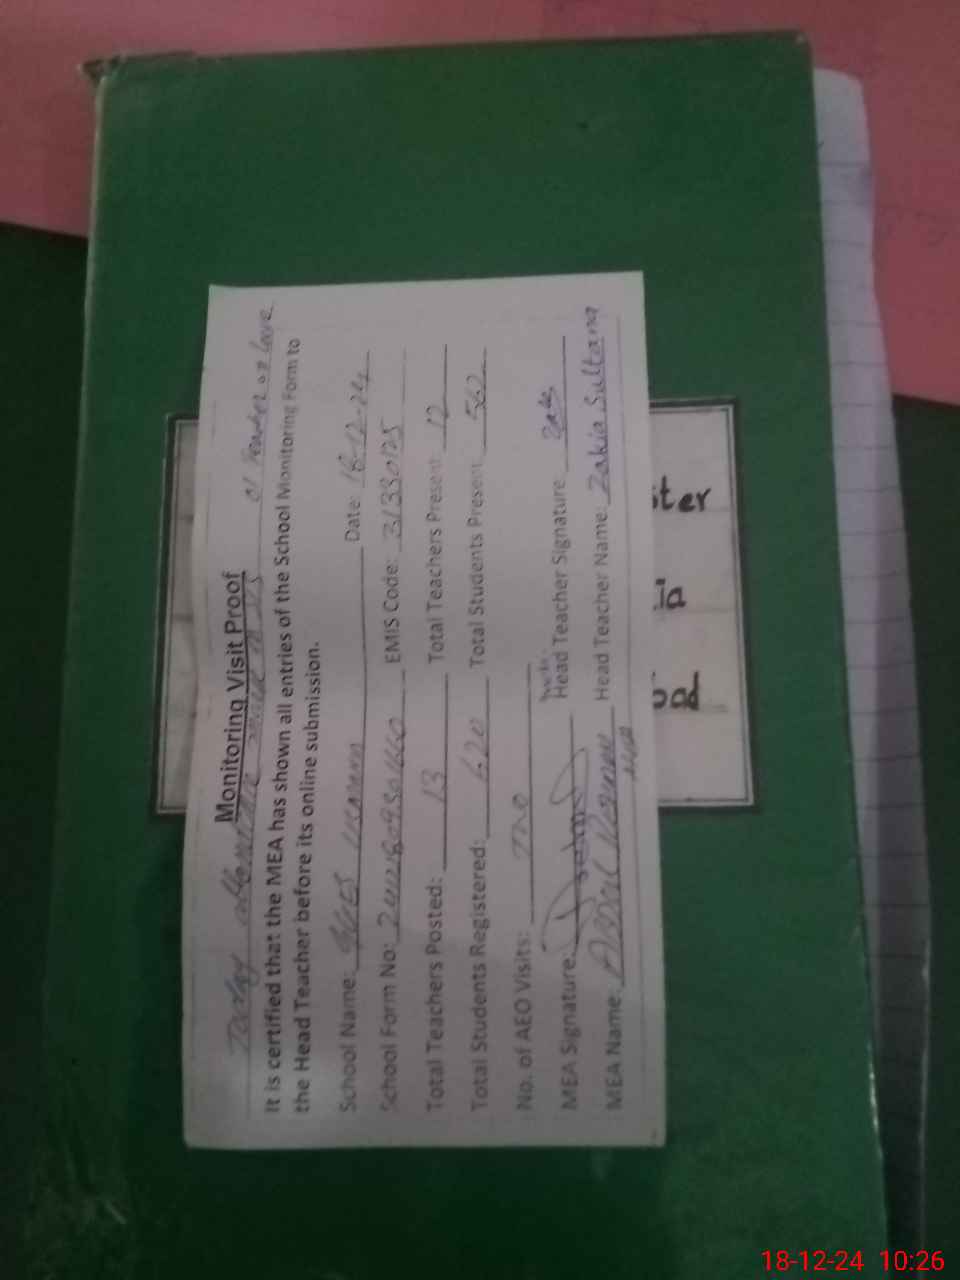 Monitoring Visit Proof
Today Attendance 01 Teacher on leave
It is certified that the MEA has shown all entries of the School Monitoring Form to
the Head Teacher before its online submission.
School Name: Date: 18-12-24
School Form No: EMIS Code: 31330125
Total Teachers Posted: 13 Total Teachers Present: 12
Total Students Registered: 620 Total Students Present: 562
No. of AEO Visits: Two
MEA Signature: Head Teacher Signature
MEA Name: Head Teacher Name: Zakia Sultana
ster
18-12-24 10:26